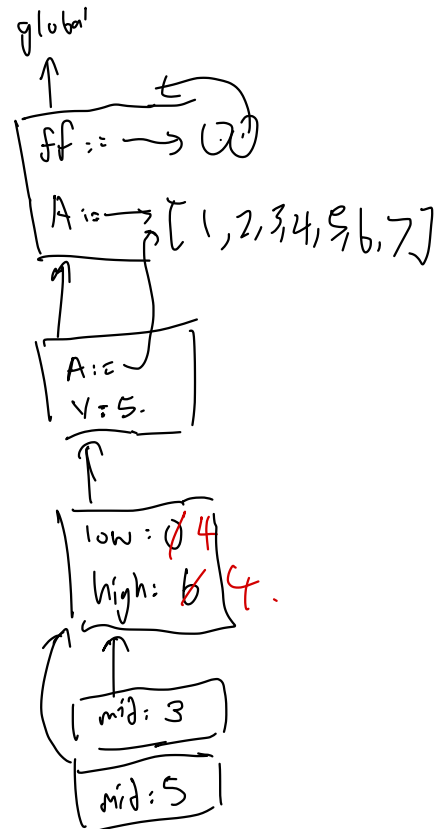 global
ff := → 
A := → [1,2,3,4,5,6,7]
A :=
V : 5.
low : 0 4
high : 6 4.
mid : 3
mid : 5